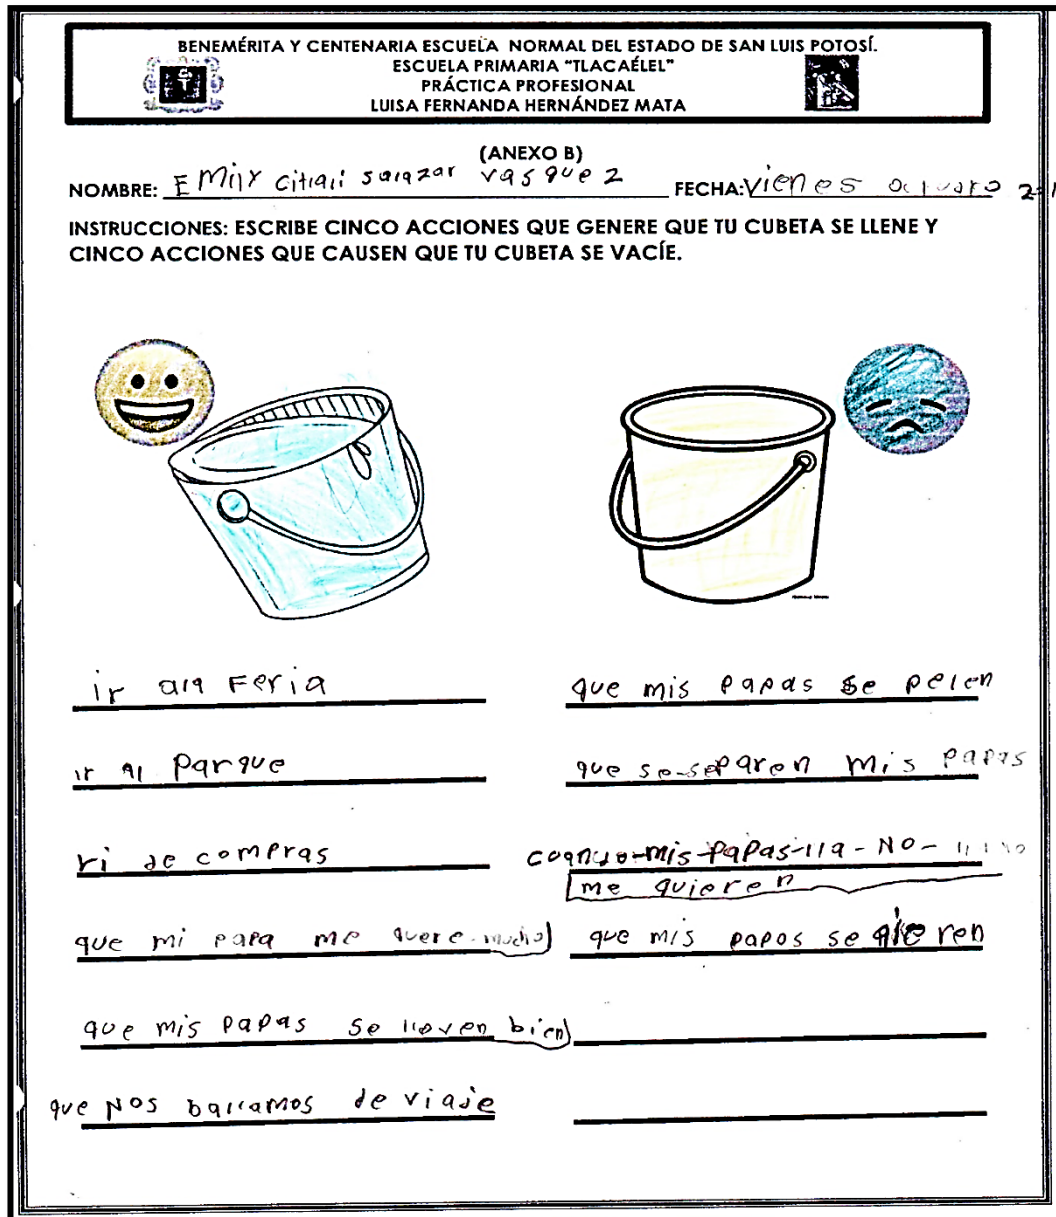 BENEMÉRITA Y CENTENARIA ESCUELA NORMAL DEL ESTADO DE SAN LUIS POTOSÍ.
ESCUELA PRIMARIA “TLACAÉLEL”
PRÁCTICA PROFESIONAL
LUISA FERNANDA HERNÁNDEZ MATA
(ANEXO B)
NOMBRE: EMily citlali salazar vasquez FECHA: Vienes
INSTRUCCIONES: ESCRIBE CINCO ACCIONES QUE GENERE QUE TU CUBETA SE LLENE Y
CINCO ACCIONES QUE CAUSEN QUE TU CUBETA SE VACÍE.
ir ala Feria
ir al Parque
ri de compras
que mi papa me quere mucho
que mis papas se lleven bien
que Nos ballamos de viaje
que mis papas se pelen
que se separen mis papas
cuando-mis-papas-lla-NO-
me quieren
que mis papos se qieren